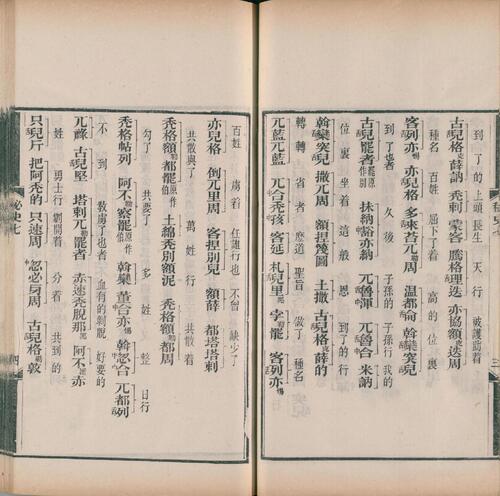 到了的 上頭 長生 天行 被護助着
古兒格克薛訥 禿剌 蒙客 騰格理迭 亦協額迭周
種名 百姓 屈下了着 高的 位裏
客列亦惕 亦兒格 多來荅兀周 溫都侖 斡欒突兒
到了也者 久後 子孫的 子孫行 我的
古兒罷者 抹納豁亦納 兀魯渾 兀魯合 米訥
位裏 坐着 這般 恩 到了的行
斡欒突兒 撒兀周 額捏篾圖 土撒 古兒格克薛的
轉轉 省者 麽道 聖旨 做了 種名
兀藍兀藍 兀合禿孩 客延 札兒里黑 孛罷 客列亦惕
百姓 虜着 任誰行也 不曾 缺少了
亦兒格 倒兀里周 客捏別兒 額薛 都塔塔剌
共散與了 萬姓行 共散着
禿格額都罷 土綿禿別額泥 禿格額都周
勾了 共要了 多姓 整日行
禿格帖列 阿不察罷 斡欒董合亦惕 兀都列
不到 教虜了也者 血有的剝脫 好要的
兀祿 古兒堅 塔剌兀罷者 赤速禿脫那 阿不亦
姓 勇士行 劈開着 分着 共到的
只兒斤 把阿禿的 只速周 忽必牙周 古兒格敦